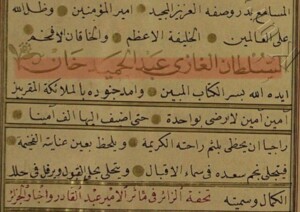 المسامع بذر وصفه العزيز المجيد امير المؤمنين وظل الله
على العالمين الخليفة الاعظم والخاقان الافخم
السلطان الغازي عبد الحميد خان
ايده الله بسر الكتاب المبين وامد جنوده بالملائكة المقربين
آمين آمين لا ارضى بواحدة حتى اضيف اليها الف آمينا
راجيا ان يحظى بلثم راحته الكريمة ويلحظ بعين عنايته الفخيمة
فينجلي نجم سعده في سماء الاقبال ويتحلى بحلى القبول ويرفل في حلل
الكمال وسميته
تحفة الزائر في مآثر الامير عبد القادر واخبار الجزائر